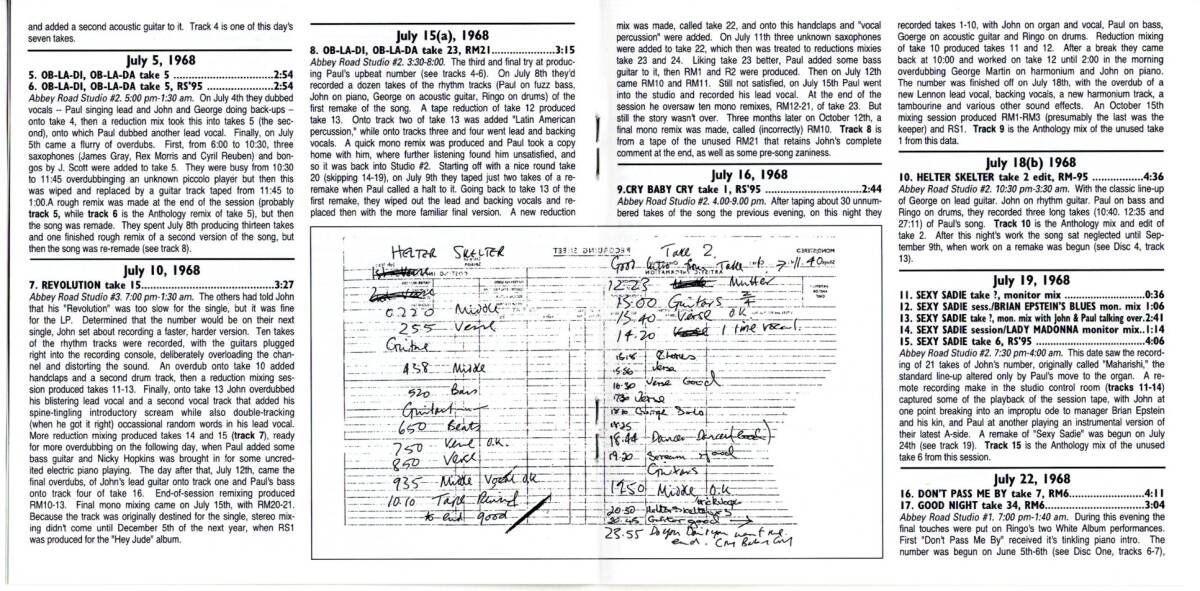 and added a second acoustic guitar to it. Track 4 is one of this day's
seven takes.
July 5, 1968
5. OB-LA-DI, OB-LA-DA take 5 ..........................2:54
6. OB-LA-DI, OB-LA-DA take 5, RS'95 ..................2:54
Abbey Road Studio #2. 5:00 pm-1:30 am. On July 4th they dubbed
vocals -- Paul singing lead and John and George doing back-ups --
onto take 4, then a reduction mix took this into takes 5 (the sec-
ond), onto which Paul dubbed another lead vocal. Finally, on July
5th came a flurry of overdubs. First, from 6:00 to 10:30, three
saxophones (James Gray, Rex Morris and Cyril Reuben) and bon-
gos by J. Scott were added to take 5. They were busy from 10:30
to 11:45 overdubbinging an unknown piccolo player but then this
was wiped and replaced by a guitar track taped from 11:45 to
1:00.A rough mix was made at the end of the session (probably
track 5, while track 6 is the Anthology remix of take 5), but then
the song was remade. They spent July 8th producing thirteen takes
and one finished rough mix of a second version of the song, but
then the song was re-remade (see track 8).
July 10, 1968
7. REVOLUTION take 15..........................3:27
Abbey Road Studio #3. 7:00 pm-1:30 am. The others had told John
that his "Revolution" was too slow for the single, but it was fine
for the LP. Determined that the number would be on their next
single, John set about recording a faster, harder version. Ten takes
of the rhythm tracks were recorded, with the guitars plugged
right into the recording console, deliberately overloading the chan-
nel and distorting the sound. An overdub onto take 10 added
handclaps and a second drum track, then a reduction mixing ses-
sion produced takes 11-13. Finally, onto take 13 John overdubbed
his blistering lead vocal and a second vocal track that added his
spine-tingling introductory scream while also double-tracking
(when he got it right) occassional random words in his lead vocal.
More reduction mixing produced takes 14 and 15 (track 7), ready
for more overdubbing on the following day, when Paul added some
bass guitar and Nicky Hopkins was brought in for some uncred-
ited electric piano playing. The day after that, July 12th, came the
final overdubs, of John's lead guitar onto track one and Paul's bass
onto track four of take 16. End-of-session remixing produced
RM10-13. Final mono mixing came on July 15th, with RM20-21.
Because the track was originally destined for the single, stereo mix-
ing didn't come until December 5th of the next year, when RS1
was produced for the "Hey Jude" album.
July 15(a), 1968
8. OB-LA-DI, OB-LA-DA take 23, RM21..................3:15
Abbey Road Studio #2. 3:30-8:00. The third and final try at produc-
ing Paul's upbeat number (see tracks 4-6). On July 8th they'd
recorded a dozen takes of the rhythm tracks (Paul on fuzz bass,
John on piano, George on acoustic guitar, Ringo on drums) of the
first remake of the song. A tape reduction of take 12 produced
take 13. Onto track two of take 13 was added "Latin American
percussion," while onto tracks three and four went lead and backing
vocals. A quick mono remix was produced and Paul took a copy
home with him, where further listening found him unsatisfied, and
so it was back into Studio #2. Starting off with a nice round take
20 (skipping 14-19), on July 9th they taped just two takes of a re-
remake when Paul called a halt to it. Going back to take 13 of the
first remake, they wiped out the lead and backing vocals and re-
placed then with the more familiar final version. A new reduction
HELTER SKELTER
0.220 Middle
255 Verse
Guitar
458 Middle
520 Bars
650 Beats
750 Verse O.K.
850 Verse
935 Middle Vocal o.k
10.10 Tape Round
to end good
RECORDING SHEET
Take 2.
12.23 Mutter
15.00 Guitars
15.40 Verse O.K
14.20 1 time vocal.
Chorus
Verse
16.30 Verse Good
Verse
18.44 Dancer Dancer (Good)
19.20 Scream good
Guitars
1950 Middle O.K
20.50 Helter Skelter
20.45 Guitar good
23.55 Do you Don't you want me
end. Cry Baby Cry
mix was made, called take 22, and onto this handclaps and "vocal
percussion" were added. On July 11th three unknown saxophones
were added to take 22, which then was treated to reductions mixies
take 23 and 24. Liking take 23 better, Paul added some bass
guitar to it, then RM1 and R2 were produced. Then on July 12th
came RM10 and RM11. Still not satisfied, on July 15th Paul went
into the studio and recorded his lead vocal. At the end of the
session he oversaw ten mono remixes, RM12-21, of take 23. But
still the story wasn't over. Three months later on October 12th, a
final mono mix was made, called (incorrectly) RM10. Track 8 is
from a tape of the unused RM21 that retains John's complete
comment at the end, as well as some pre-song zaniness.
July 16, 1968
9.CRY BABY CRY take 1, RS'95 ..........................2:44
Abbey Road Studio #2. 4.00-9.00 pm. After taping about 30 unnum-
bered takes of the song the previous evening, on this night they
recorded takes 1-10, with John on organ and vocal, Paul on bass,
Goerge on acoustic guitar and Ringo on drums. Reduction mixing
of take 10 produced takes 11 and 12. After a break they came
back at 10:00 and worked on take 12 until 2:00 in the morning
overdubbing George Martin on harmonium and John on piano.
The number was finished off on July 18th, with the overdub of a
new Lennon lead vocal, backing vocals, a new harmonium track, a
tambourine and various other sound effects. An October 15th
mixing session produced RM1-RM3 (presumably the last was the
keeper) and RS1. Track 9 is the Anthology mix of the unused take
1 from this data.
July 18(b) 1968
10. HELTER SKELTER take 2 edit, RM-95 ..................4:36
Abbey Road Studio #2. 10:30 pm-3:30 am. With the classic line-up
of George on lead guitar. John on rhythm guitar. Paul on bass and
Ringo on drums, they recorded three long takes (10:40. 12:35 and
27:11) of Paul's song. Track 10 is the Anthology mix and edit of
take 2. After this night's work the song sat neglected until Sep-
tember 9th, when work on a remake was begun (see Disc 4, track
13).
July 19, 1968
11. SEXY SADIE take ?, monitor mix ..........................0:36
12. SEXY SADIE sess./BRIAN EPSTEIN'S BLUES mon. mix 1:06
13. SEXY SADIE take ?, mon. mix with John & Paul talking over.2:41
14. SEXY SADIE session/LADY MADONNA monitor mix..1:14
15. SEXY SADIE take 6, RS'95 ..........................4:06
Abbey Road Studio #2. 7:30 pm-4:00 am. This date saw the record-
ing of 21 takes of John's number, originally called "Maharishi," the
standard line-up altered only by Paul's move to the organ. A re-
mote recording make in the studio control room (tracks 11-14)
captured some of the playback of the session tape, with John at
one point breaking into an improptu ode to manager Brian Epstein
and his kin, and Paul at another playing an instrumental version of
their latest A-side. A remake of "Sexy Sadie" was begun on July
24th (see track 19). Track 15 is the Anthology mix of the unused
take 6 from this session.
July 22, 1968
16. DON'T PASS ME BY take 7, RM6..................4:11
17. GOOD NIGHT take 34, RM6..........................3:04
Abbey Road Studio #1. 7:00 pm-1:40 am. During this evening the
final touches were put on Ringo's two White Album performances.
First "Don't Pass Me By" received it's tinkling piano intro. The
number was begun on June 5th-6th (see Disc One, tracks 6-7),